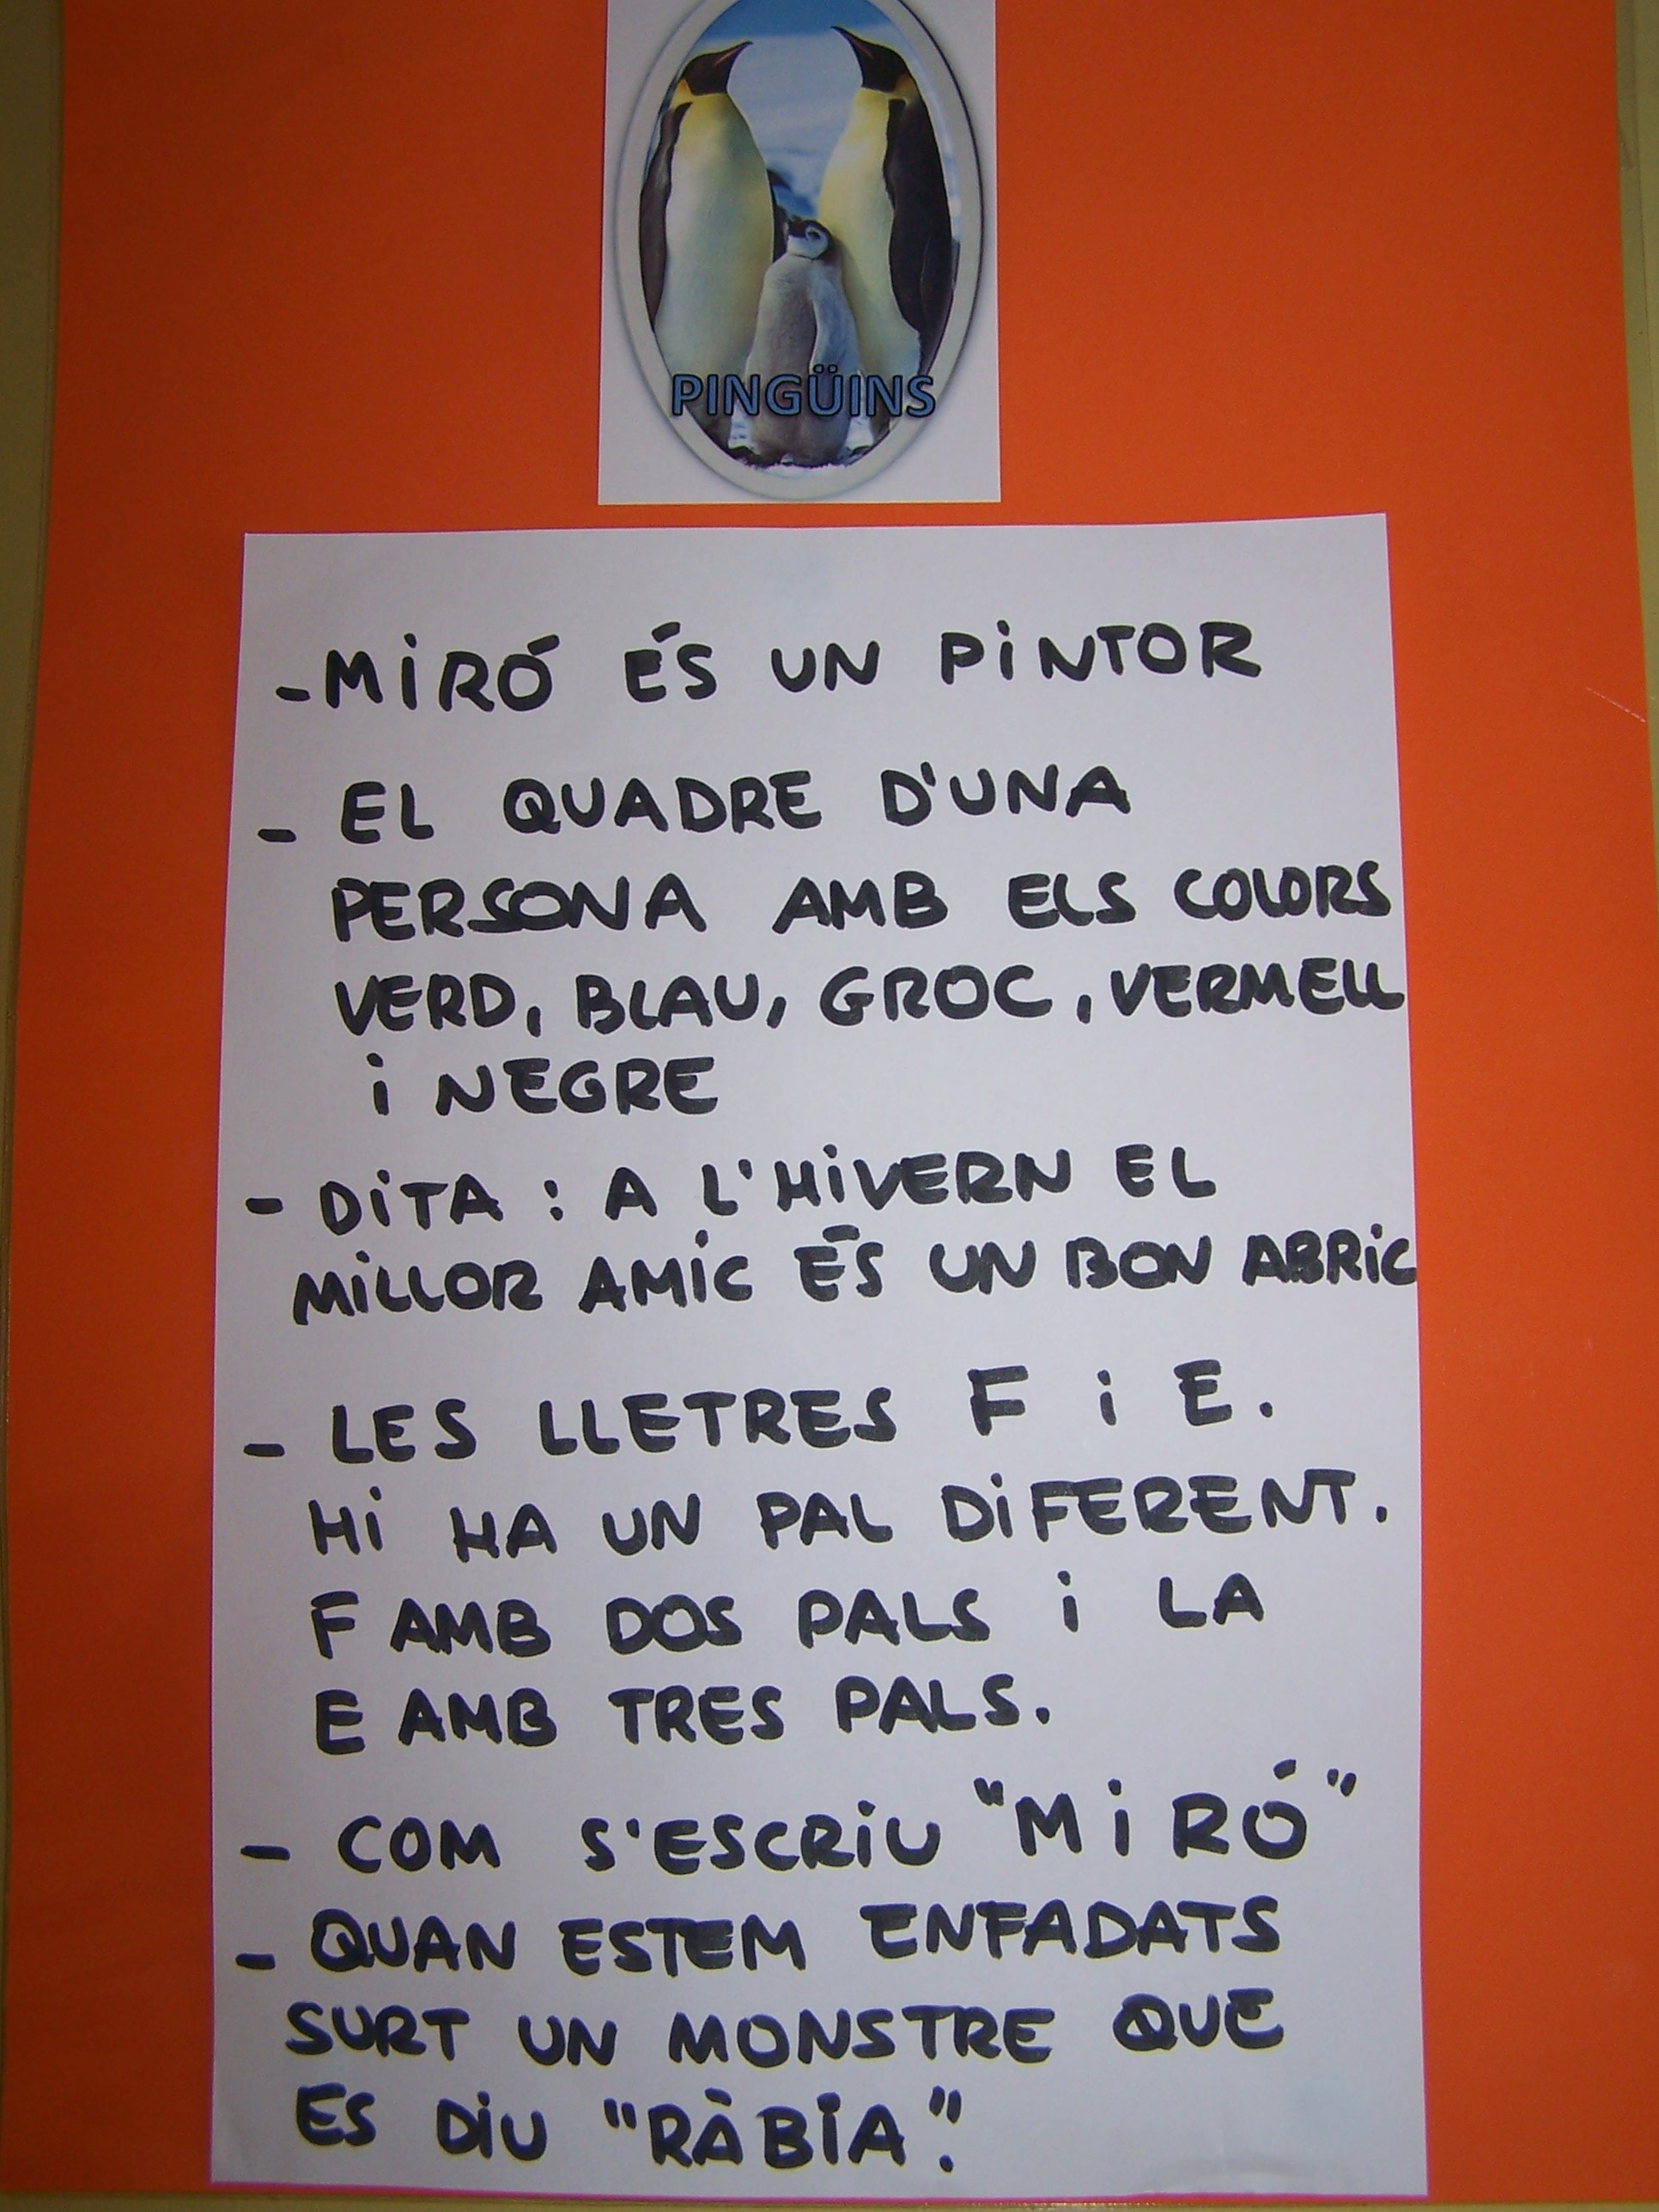 PINGÜINS
- MiRÓ ÉS UN PiNTOR
- EL QUADRE D'UNA
PERSONA AMB ELS COLORS
VERD, BLAU, GROC, VERMELL
i NEGRE
- DiTA : A L'HiVERN EL
MiLLOR AMiC ÉS UN BON ABRiC
- LES LLETRES F i E.
Hi HA UN PAL DiFERENT.
F AMB DOS PALS i LA
E AMB TRES PALS.
- COM S'ESCRiU "MiRÓ"
- QUAN ESTEM ENFADATS
SURT UN MONSTRE QUE
ES DiU "RÀBIA".